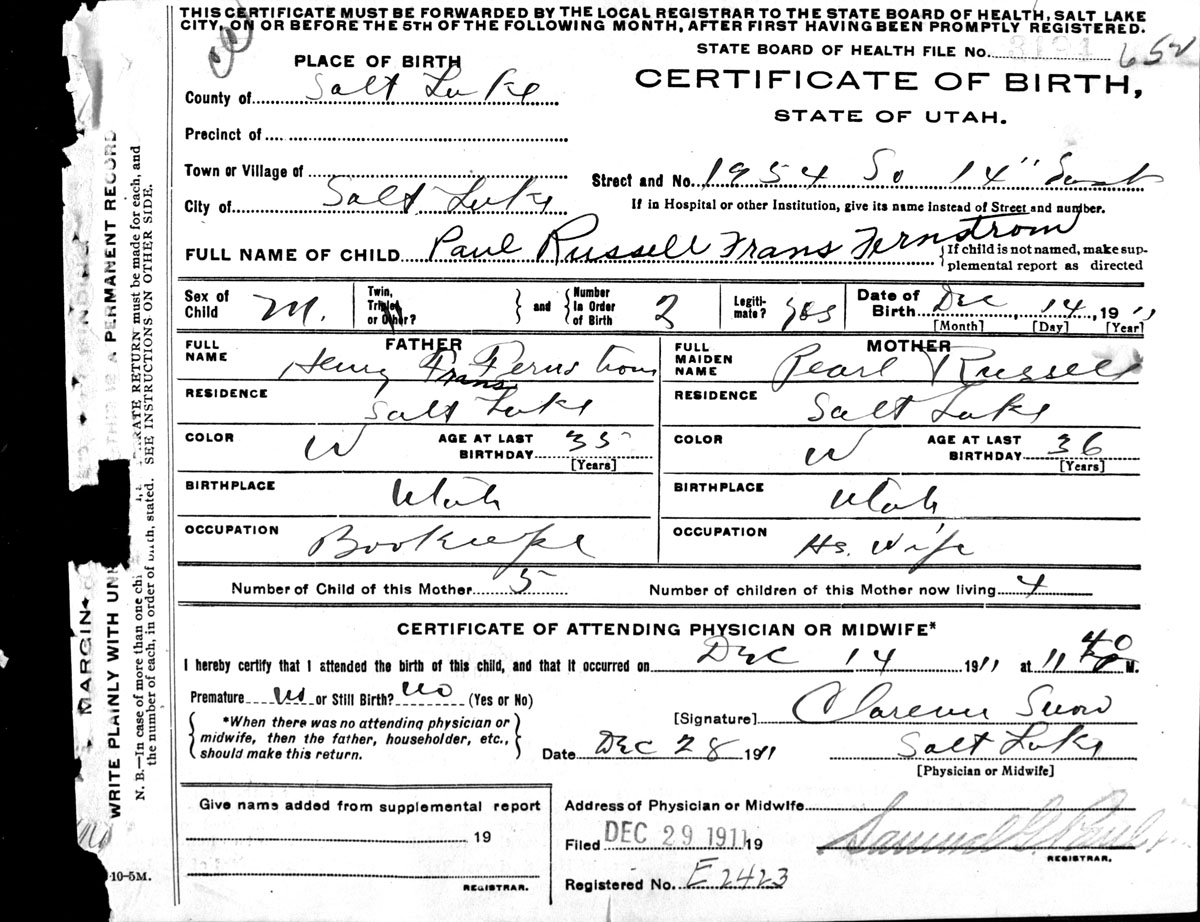 THIS CERTIFICATE MUST BE FORWARDED BY THE LOCAL REGISTRAR TO THE STATE BOARD OF HEALTH, SALT LAKE
CITY, ON OR BEFORE THE 5TH OF THE FOLLOWING MONTH, AFTER FIRST HAVING BEEN PROMPTLY REGISTERED.
STATE BOARD OF HEALTH FILE No. 652
PLACE OF BIRTH
CERTIFICATE OF BIRTH,
STATE OF UTAH.
County of Salt Lake
Precinct of
Town or Village of
City of Salt Lake
Street and No. 1954 So 14" East
If in Hospital or other Institution, give its name instead of Street and number.
FULL NAME OF CHILD Paul Russell Frans Fernstrom
{If child is not named, make sup-
plemental report as directed
Sex of Child M.
Twin, Triplet or Other?
and
Number In Order of Birth 2
Legiti-mate? yes
Date of Birth Dec 14, 1911
[Month] [Day] [Year]
FATHER
FULL NAME Henry Frans Fernstrom
RESIDENCE Salt Lake
COLOR W AGE AT LAST BIRTHDAY 35 [Years]
BIRTHPLACE Utah
OCCUPATION Bookeeper
MOTHER
FULL MAIDEN NAME Pearl Russell
RESIDENCE Salt Lake
COLOR W AGE AT LAST BIRTHDAY 36 [Years]
BIRTHPLACE Utah
OCCUPATION Hs. Wife
Number of Child of this Mother 5 Number of children of this Mother now living 4
CERTIFICATE OF ATTENDING PHYSICIAN OR MIDWIFE*
I hereby certify that I attended the birth of this child, and that it occurred on Dec 14 1911 at 11 40 M.
Premature No or Still Birth? No (Yes or No)
*When there was no attending physician or
midwife, then the father, householder, etc.,
should make this return.
[Signature] Clarence Snow
Date Dec 28 1911 Salt Lake
[Physician or Midwife]
Give name added from supplemental report
19
REGISTRAR.
Address of Physician or Midwife
Filed DEC 29 1911 19
REGISTRAR.
Registered No. E2423
MARGIN
WRITE PLAINLY WITH UN
A PERMAMENT RECORD
N. B.—In case of more than one chi RATE RETURN must be made for each, and
the number of each, in order of birth, stated. SEE INSTRUCTIONS ON OTHER SIDE.
10-5M.